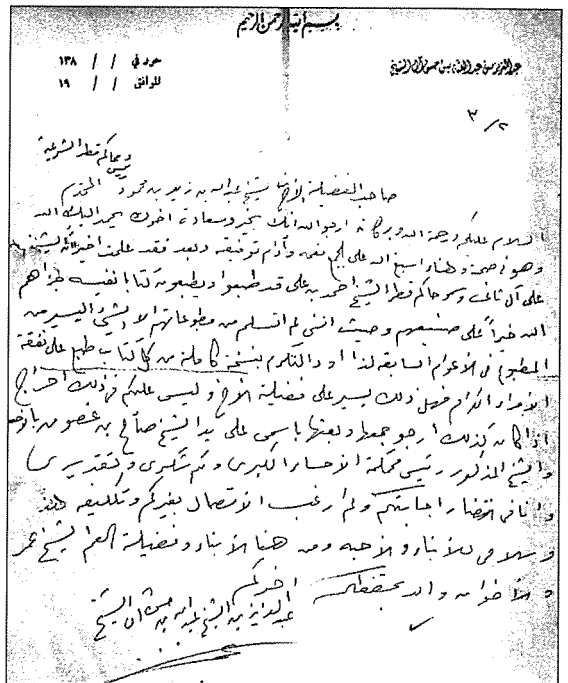 بسم الله الرحمن الرحيم
عبدالعزيز بن عبدالله بن حسن آل الشيخ
حرر في / / ١٣٨
الموافق / / ١٩
٣/٢
صاحب الفضيلة الأخ الشيخ عبدالله بن زيد بن محمود المحترم
رئيس محاكم قطر الشرعية
السلام عليكم ورحمة الله وبركاته ارجو الله انك بخير وسعادة اخوك يحمد اليك الله
وهو في صحة وهناء اسبغ الله على الجميع نعمه وأدام توفيقه وبعد فقد علمت اخيرا أن الشيخ
علي آل ثاني وسمو حاكم قطر الشيخ احمد بن علي قد طبعوا ويطبعون كتبا نفيسه جزاهم
الله خيرا على صنيعهم وحيث انني لم اتسلم من مطبوعاتهم الا الشيء اليسير من
المطبوع في الأعوام السابقه لذا اود التكرم بنسخة كاملة من كل كتاب طبع على نفقة
الأمراء الكرام فهل ذلك يسير على فضيلة الأخ وليس عليكم في ذلك احراج
اذا كان كذلك ارجو جمعها وبعثها باسمي على يد الشيخ صالح بن غصون بالاحساء
والشيخ المذكور رئيس محكمة الأحساء الكبرى ولكم شكري وتقديري
وانا في انتظار اجابتكم ولم ارغب الاتصال بغيركم وتكليفه
وسلامي للأبناء والأحبه ومن هنا الأبناء وفضيلة العم الشيخ عمر
والأخوان والله يحفظكم
اخوكم
عبدالعزيز بن الشيخ عبدالله بن حسن آل الشيخ